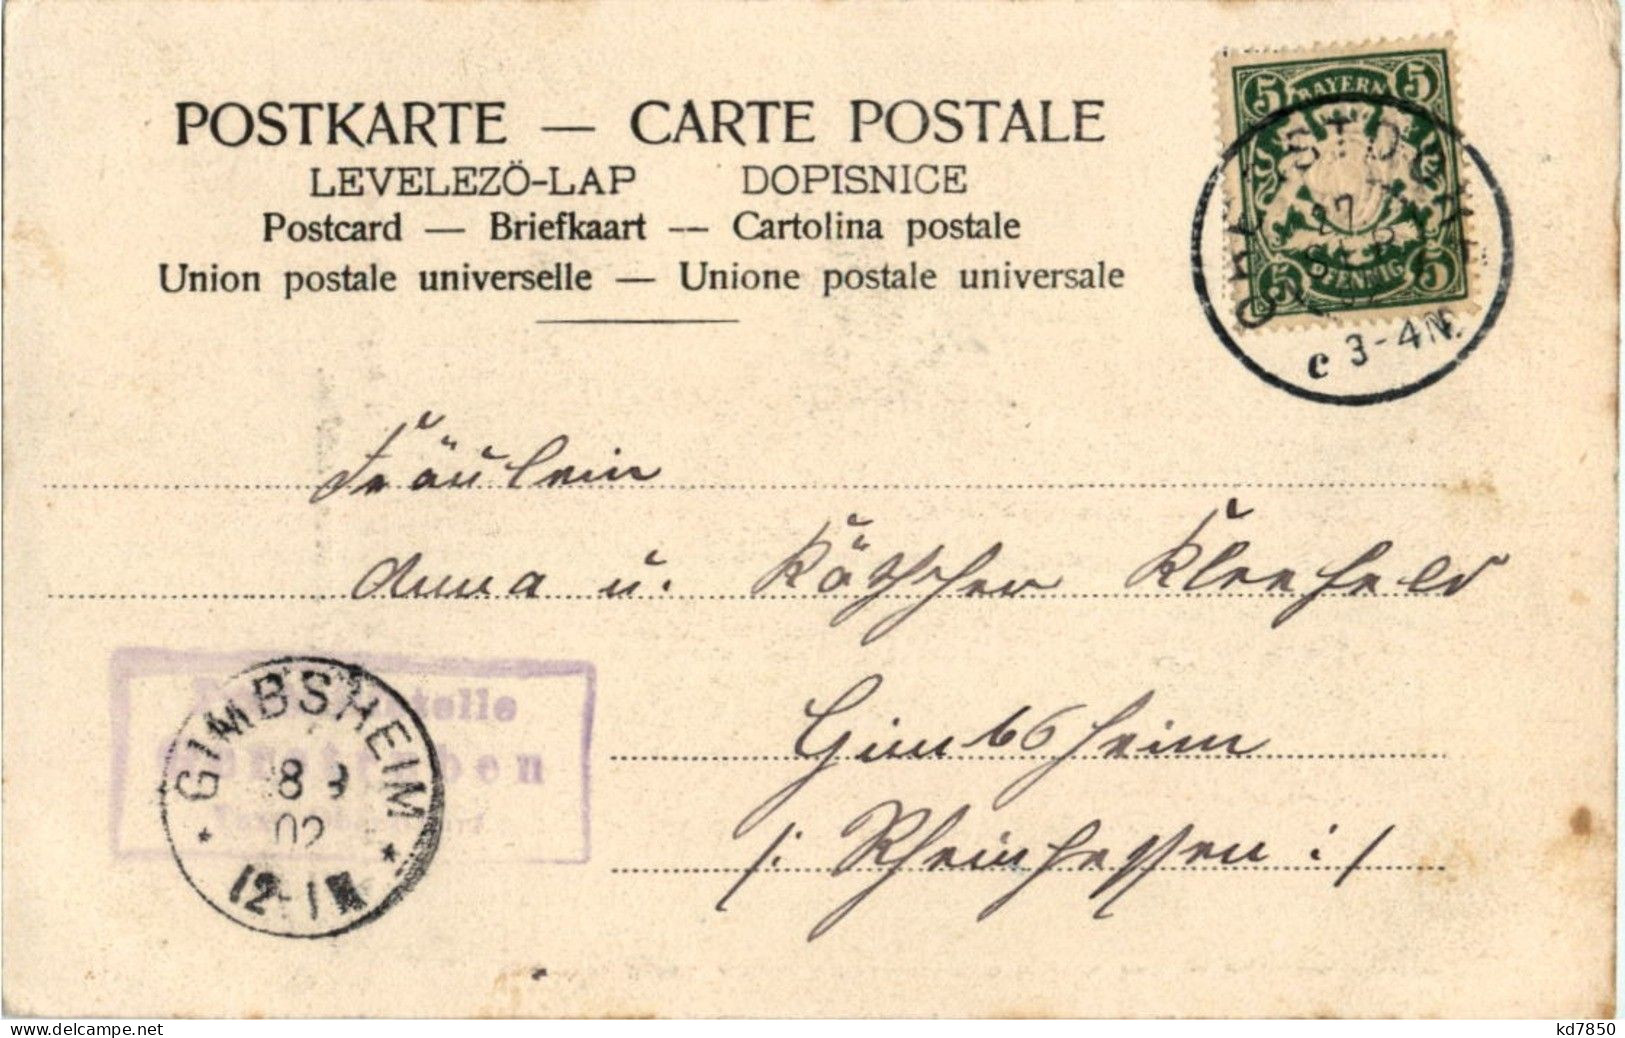 POSTKARTE — CARTE POSTALE
LEVELEZÖ-LAP DOPISNICE
Postcard — Briefkaart -- Cartolina postale
Union postale universelle — Unione postale universale
5 BAYERN 5
5 PFENNIG 5
27
c 3-4N.
Fräulein
Anna u. Käthchen Kleefeld
Gimbsheim
/: Rheinhessen :/
GIMBSHEIM
02
12-1N
www.delcampe.net
kd7850